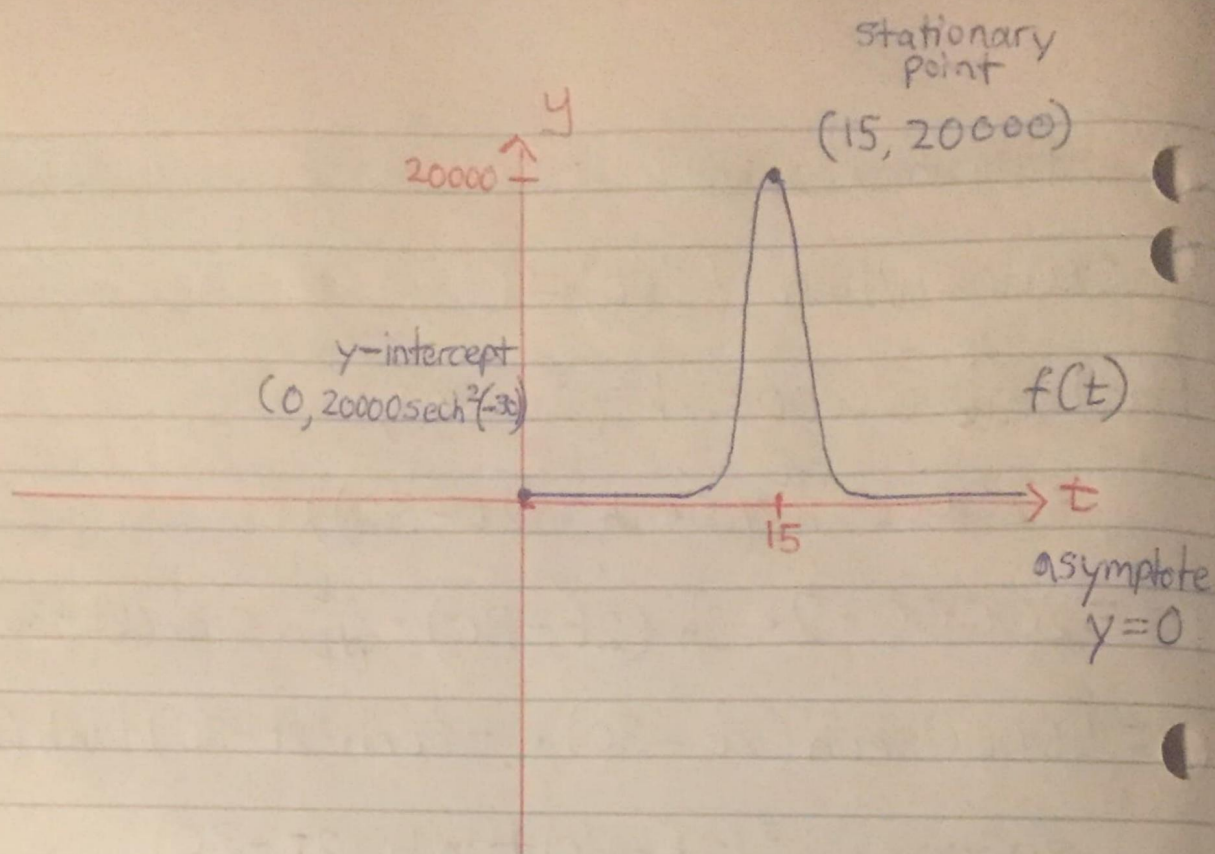 stationary
point
y
(15, 20000)
20000
y-intercept
(0, 20000sech²(-30))
f(t)
t
15
asymptote
y=0